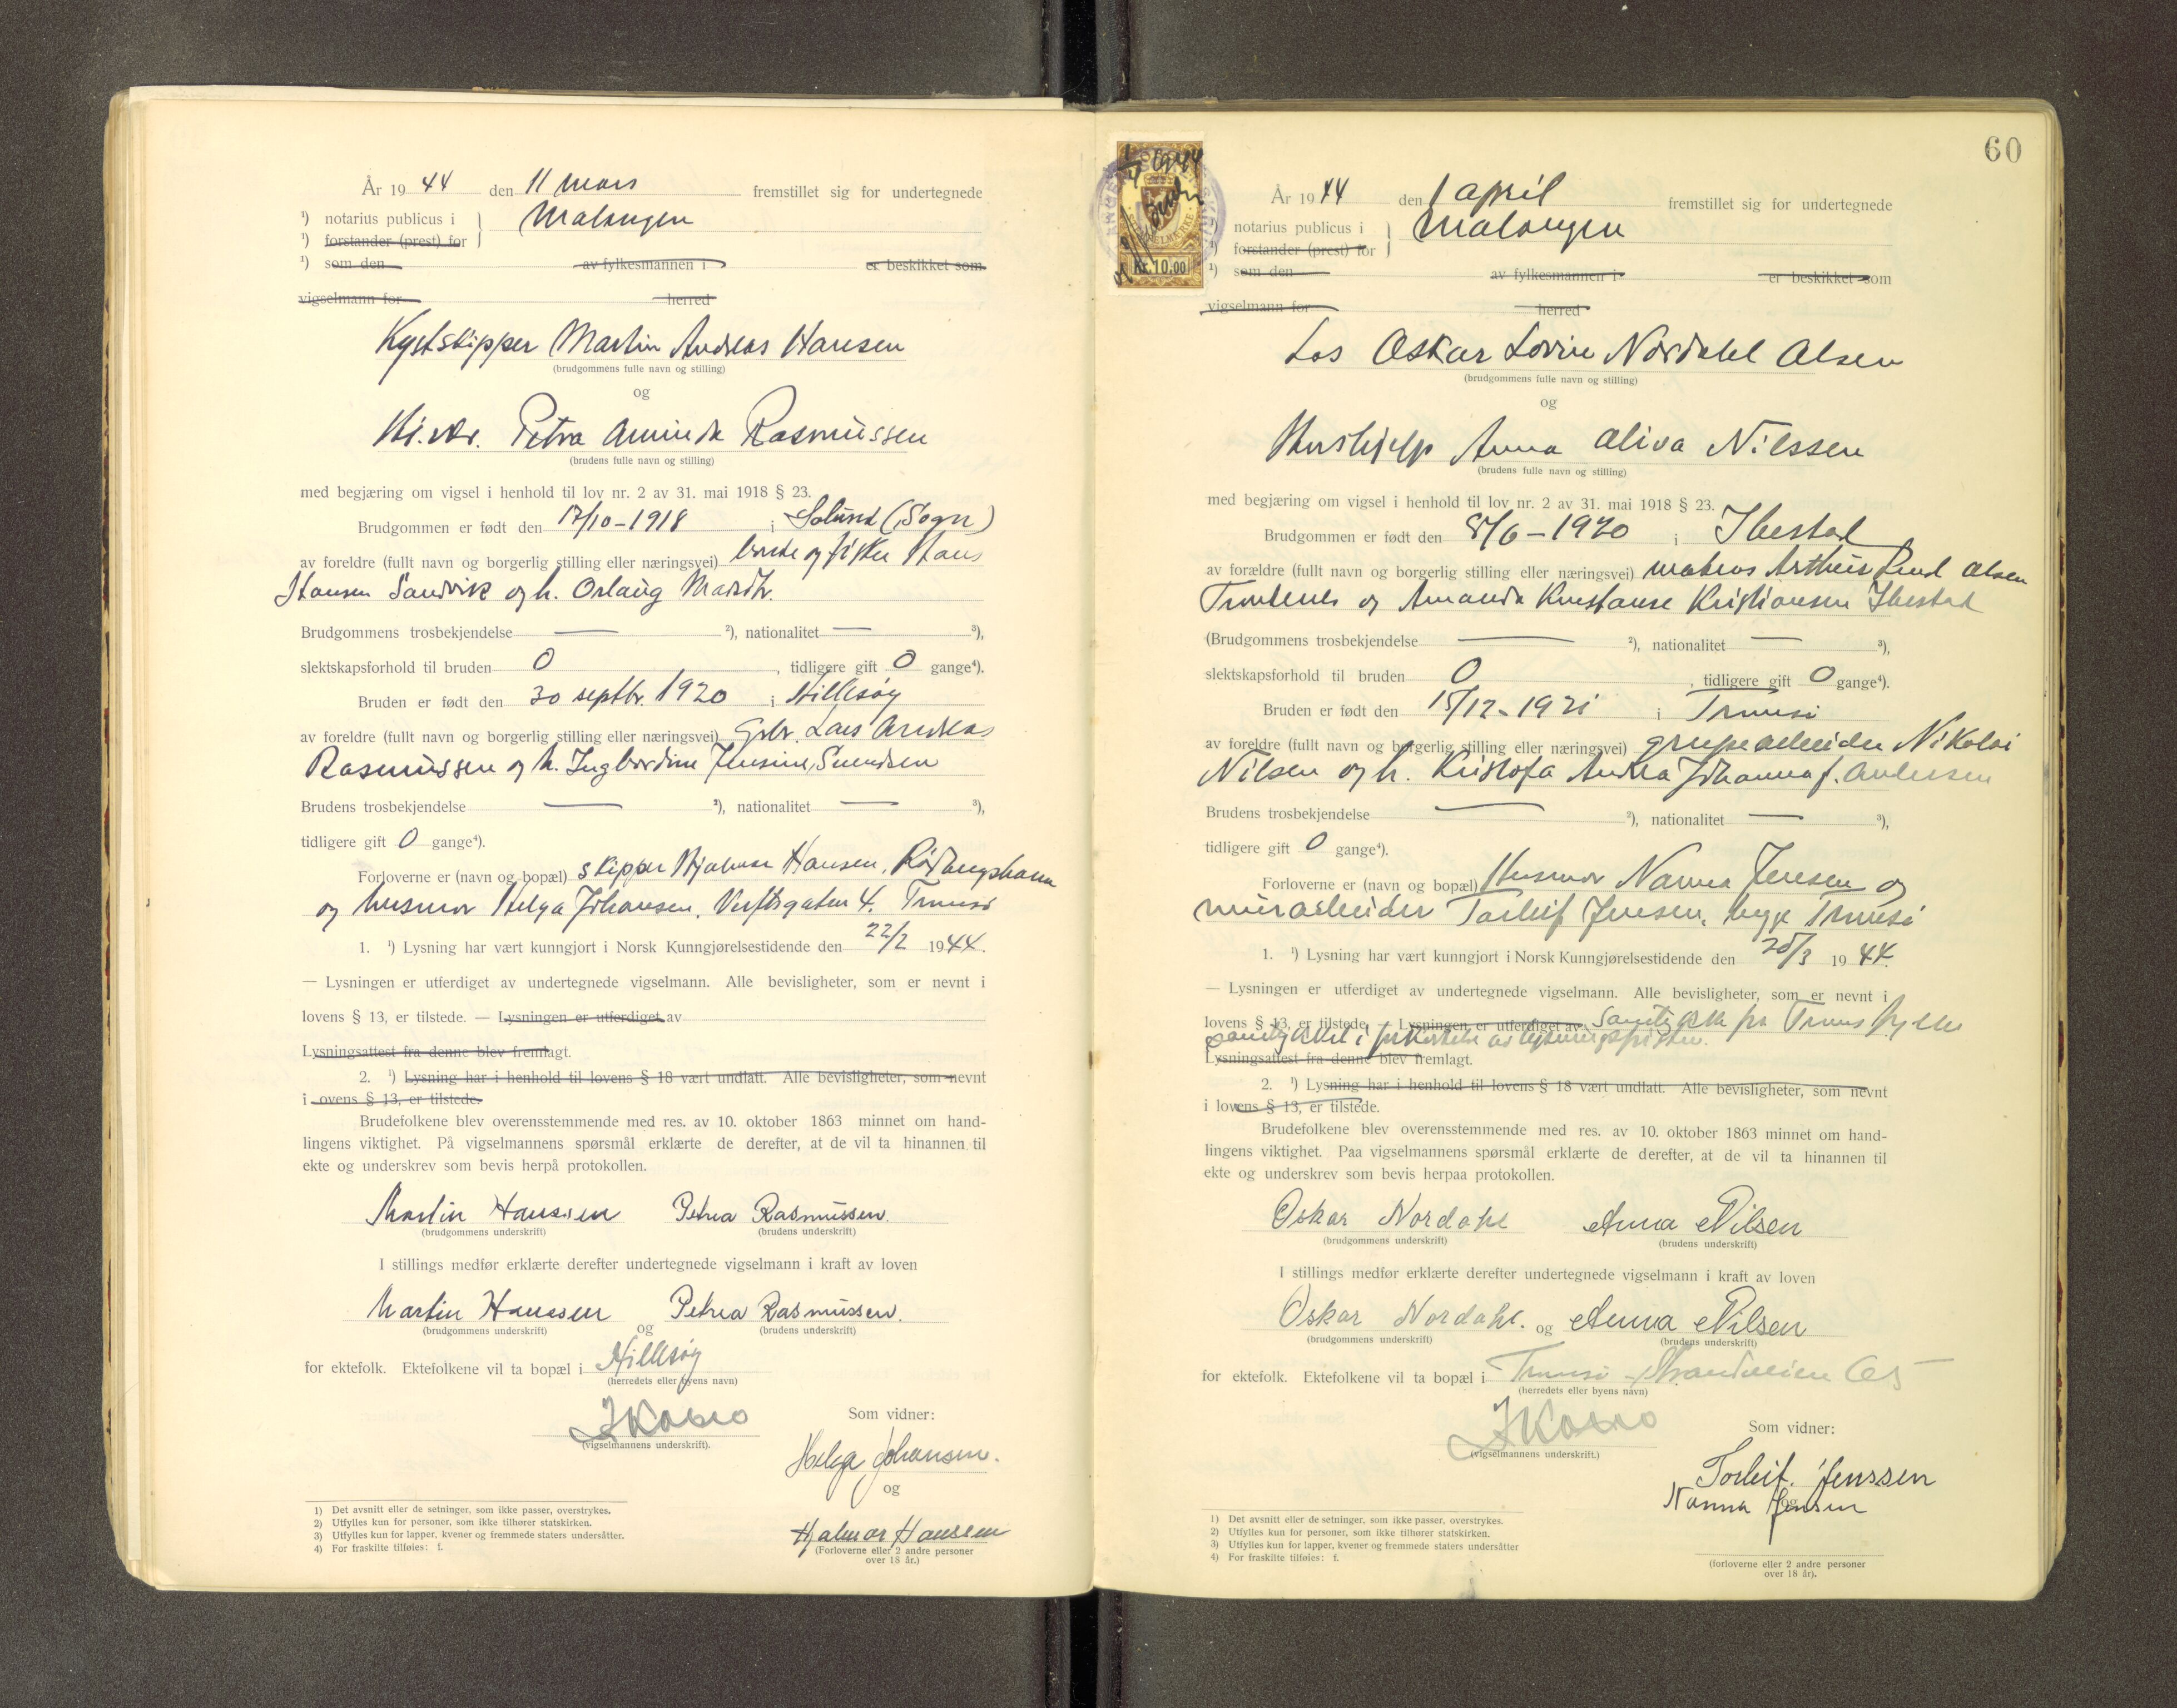 År 19 44 den 11 mars fremstillet sig for undertegnede
¹) notarius publicus i Malangen
¹) forstander (prest) for
¹) som den av fylkesmannen i er beskikket som
vigselmann for herred
Kystskipper Martin Andreas Hansen
(brudgommens fulle navn og stilling)
og
Petra Aminda Rasmussen
(brudens fulle navn og stilling)
med begjæring om vigsel i henhold til lov nr. 2 av 31. mai 1918 § 23.
Brudgommen er født den 17/10-1918 i Solund (Sogn)
av foreldre (fullt navn og borgerlig stilling eller næringsvei) bonde og fisker Hans
Hansen Sandvik og h. Oslaug
Brudgommens trosbekjendelse — ²), nationalitet — ³),
slektskapsforhold til bruden 0, tidligere gift 0 gange⁴).
Bruden er født den 30 septbr. 1920 i Hillesøy
av foreldre (fullt navn og borgerlig stilling eller næringsvei) Gbr. Lars Andreas
Rasmussen og h. Ingbordine Jensine, Svendsen
Brudens trosbekjendelse — ²), nationalitet — ³),
tidligere gift 0 gange⁴).
Forloverne er (navn og bopæl) skipper Hjalmar Hansen,
og husmor Helga Johansen, Verftsgaten 4. Tromsö
1. ¹) Lysning har vært kunngjort i Norsk Kunngjørelsestidende den 22/2 1944.
— Lysningen er utferdiget av undertegnede vigselmann. Alle bevisligheter, som er nevnt i
lovens § 13, er tilstede. — Lysningen er utferdiget av
Lysningsattest fra denne blev fremlagt.
2. ¹) Lysning har i henhold til lovens § 18 vært undlatt. Alle bevisligheter, som nevnt
i lovens § 13, er tilstede.
Brudefolkene blev overensstemmende med res. av 10. oktober 1863 minnet om hand-
lingens viktighet. På vigselmannens spørsmål erklærte de derefter, at de vil ta hinannen til
ekte og underskrev som bevis herpå protokollen.
Martin Hanssen Petra Rasmussen.
(brudgommens underskrift) (brudens underskrift)
I stillings medfør erklærte derefter undertegnede vigselmann i kraft av loven
Martin Hanssen og Petra Rasmussen.
(brudgommens underskrift) (brudens underskrift)
for ektefolk. Ektefolkene vil ta bopæl i Hillesøy
(herredets eller byens navn)
(vigselmannens underskrift).
Som vidner:
Helga Johansen.
og
Hjalmar Hansen
(Forloverne eller 2 andre personer
over 18 år.)
1) Det avsnitt eller de setninger, som ikke passer, overstrykes.
2) Utfylles kun for personer, som ikke tilhører statskirken.
3) Utfylles kun for lapper, kvener og fremmede staters undersåtter.
4) For fraskilte tilføies: f.
60
Kr. 10,00
År 19 44 den 1 april fremstillet sig for undertegnede
notarius publicus i Malangen
¹) forstander (prest) for
¹) som den av fylkesmannen i er beskikket som
vigselmann for herred
Los Oskar Lovin Nordahl Olsen
(brudgommens fulle navn og stilling)
og
Hushjelp Anna Oliva Nilssen
(brudens fulle navn og stilling)
med begjæring om vigsel i henhold til lov nr. 2 av 31. mai 1918 § 23.
Brudgommen er født den 8/6-1920 i Ibestad
av forældre (fullt navn og borgerlig stilling eller næringsvei) matros Arthur Olsen
Trondenes og Amanda Konstanse Kristiansen Ibestad
(Brudgommens trosbekjendelse — ²), nationalitet — ³),
slektskapsforhold til bruden 0, tidligere gift 0 gange⁴).
Bruden er født den 15/12-1921 i Tromsö
av foreldre (fullt navn og borgerlig stilling eller næringsvei) grubearbeider Nikolai
Nilsen og h. Kristofa Andrea Johanna f. Andersen
Brudens trosbekjendelse — ²), nationalitet — ³),
tidligere gift 0 gange⁴).
Forloverne er (navn og bopæl) Husmor Nanna Jensen og
murarbeider Torleif Jensen, begge Tromsö
1. ¹) Lysning har vært kunngjort i Norsk Kunngjørelsestidende den 1944.
— Lysningen er utferdiget av undertegnede vigselmann. Alle bevisligheter, som er nevnt i
lovens § 13, er tilstede. — Lysningen er utferdiget av Samtykke fra Troms fylke
samtykket i forkortelse av lysningsfristen.
Lysningsattest fra denne blev fremlagt.
2. ¹) Lysning har i henhold til lovens § 18 vært undlatt. Alle bevisligheter, som nevnt
i lovens § 13, er tilstede.
Brudefolkene blev overensstemmende med res. av 10. oktober 1863 minnet om hand-
lingens viktighet. Paa vigselmannens spørsmål erklærte de derefter, at de vil ta hinannen til
ekte og underskrev som bevis herpaa protokollen.
Oskar Nordahl Anna Nilsen
(brudgommens underskrift) (brudens underskrift)
I stillings medfør erklærte derefter undertegnede vigselmann i kraft av loven
Oskar Nordahl. og Anna Nilsen
(brudgommens underskrift) (brudens underskrift)
for ektefolk. Ektefolkene vil ta bopæl i Tromsö - Strandveien
(herredets eller byens navn)
(vigselmannens underskrift.)
Som vidner:
Torleif. Jenssen
og
Nanna Jensen
(forloverne eller 2 andre personer
over 18 år).
1) Det avsnitt eller de setninger, som ikke passer, overstrykes.
2) Utfylles kun for personer, som ikke tilhører statskirken.
3) Utfylles kun for lapper, kvener og fremmede staters undersåtter
4) For fraskilte tilføies: f.